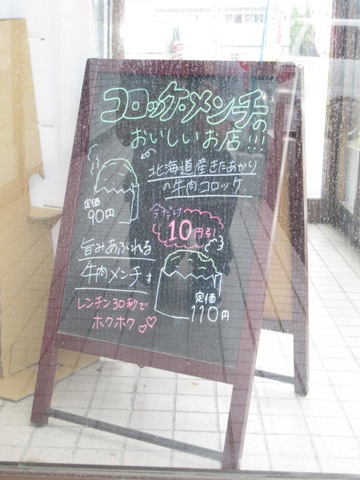 コロッケ・メンチの
おいしいお店!!!
北海道産きたあかり
の牛肉コロッケ
定価
90円
今だけ
10円引!
旨みあふれる
牛肉メンチ
レンチン30秒で
ホクホク♡♡
定価
110円